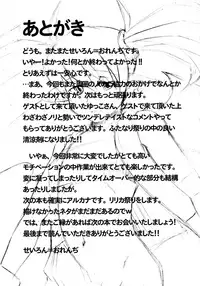 あとがき
どうも、またまたせいろん=おれんぢです。
いやー!よかった!何とか終わってよかった!!
とりあえずは一安心です。
…まあ、今回も また のおかげでなんとか
終わったわけですが、次はもっと頑張ります。
ゲストとして来て頂いたゆっこさん、ゲストで来て頂いた上
わざわざノリと勢いでツンデレテイストなコメントやって
もらってありがとうございます。ふたなり祭りの中の良い
清涼剤になりました。
いやぁ、今回非常に大変でしたがとても高い
モチベーションの中作業が出来てとても楽しかったです。
変に凝ってしまったりしてタイムオーバー的な部分も結構
あったりしましたが。
次の本も確実にアルカナで、リリカ祭りをします。
描けなかったネタがまだまだあるので
では、またご縁があれば次の本でお会いいたしましょう!
最後まで読んでいただきありがとうございました!!
せいろん=おれんぢ